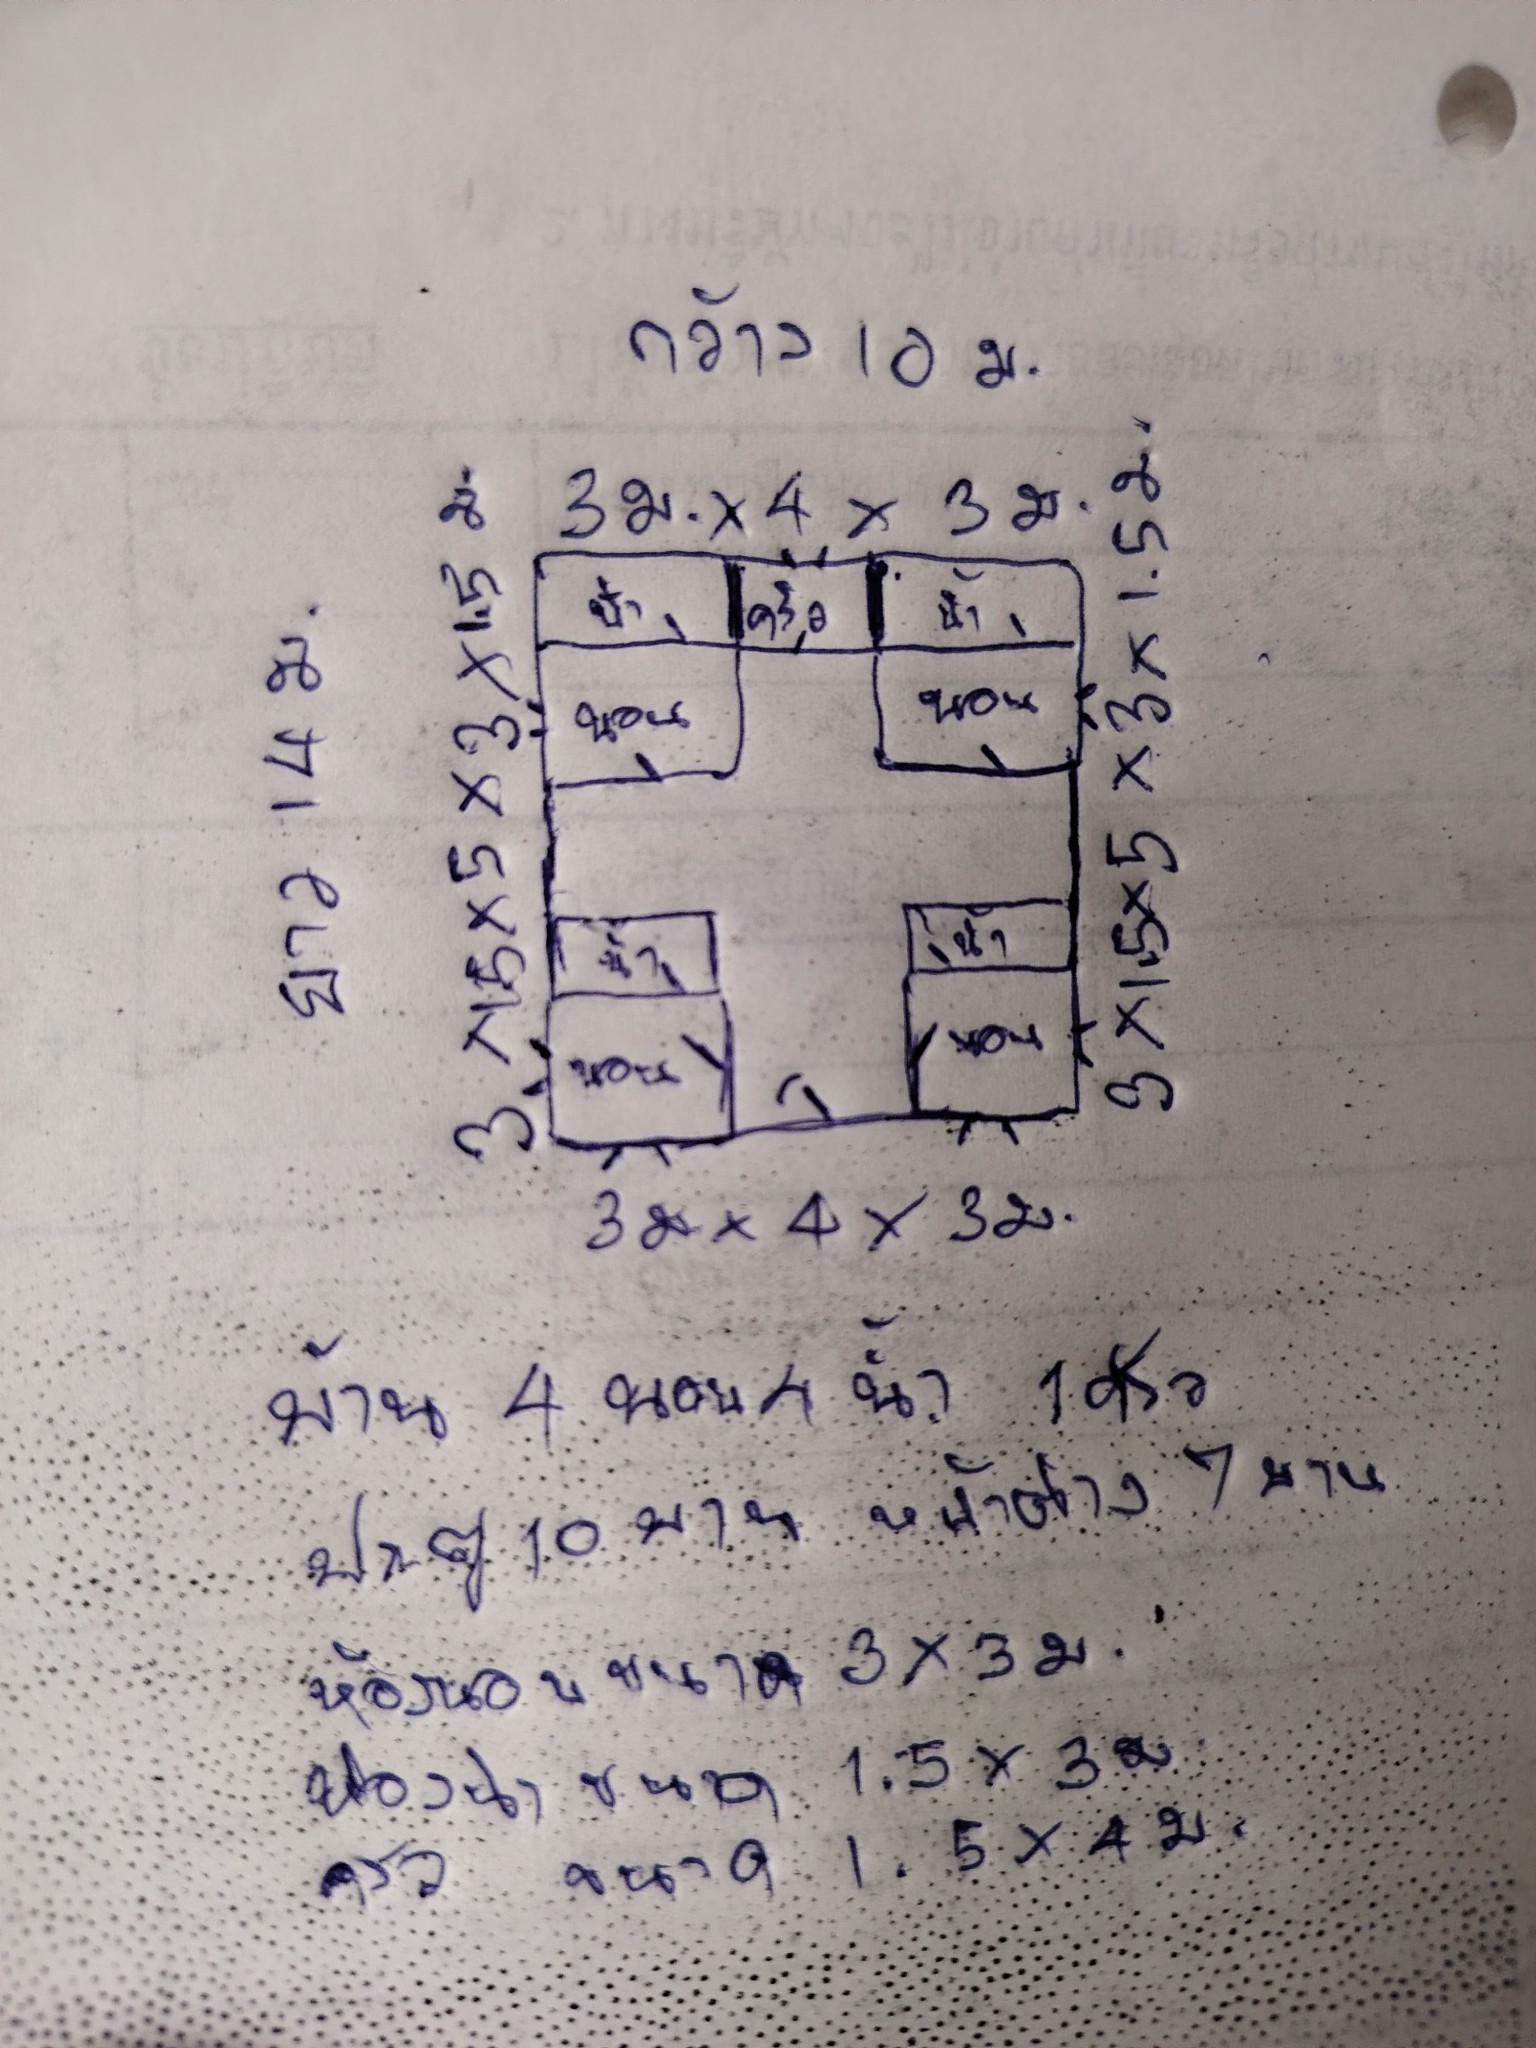 กว้าง 10 ม.
3 ม. x 4 x 3 ม.
ยาว 14 ม.
3 x 1.5 x 5 x 3 x 1.5 ม
น้ำ ครัว น้ำ
นอน นอน
น้ำ น้ำ
นอน นอน
3 x 1.5 x 5 x 3 x 1.5 ม.
3 ม x 4 x 3 ม.
บ้าน 4 นอน 4 น้ำ 1 ครัว
ประตู 10 บาน หน้าต่าง 7 บาน
ห้องนอน ขนาด 3 x 3 ม.
ห้องน้ำ ขนาด 1.5 x 3 ม
ครัว ขนาด 1.5 x 4 ม.